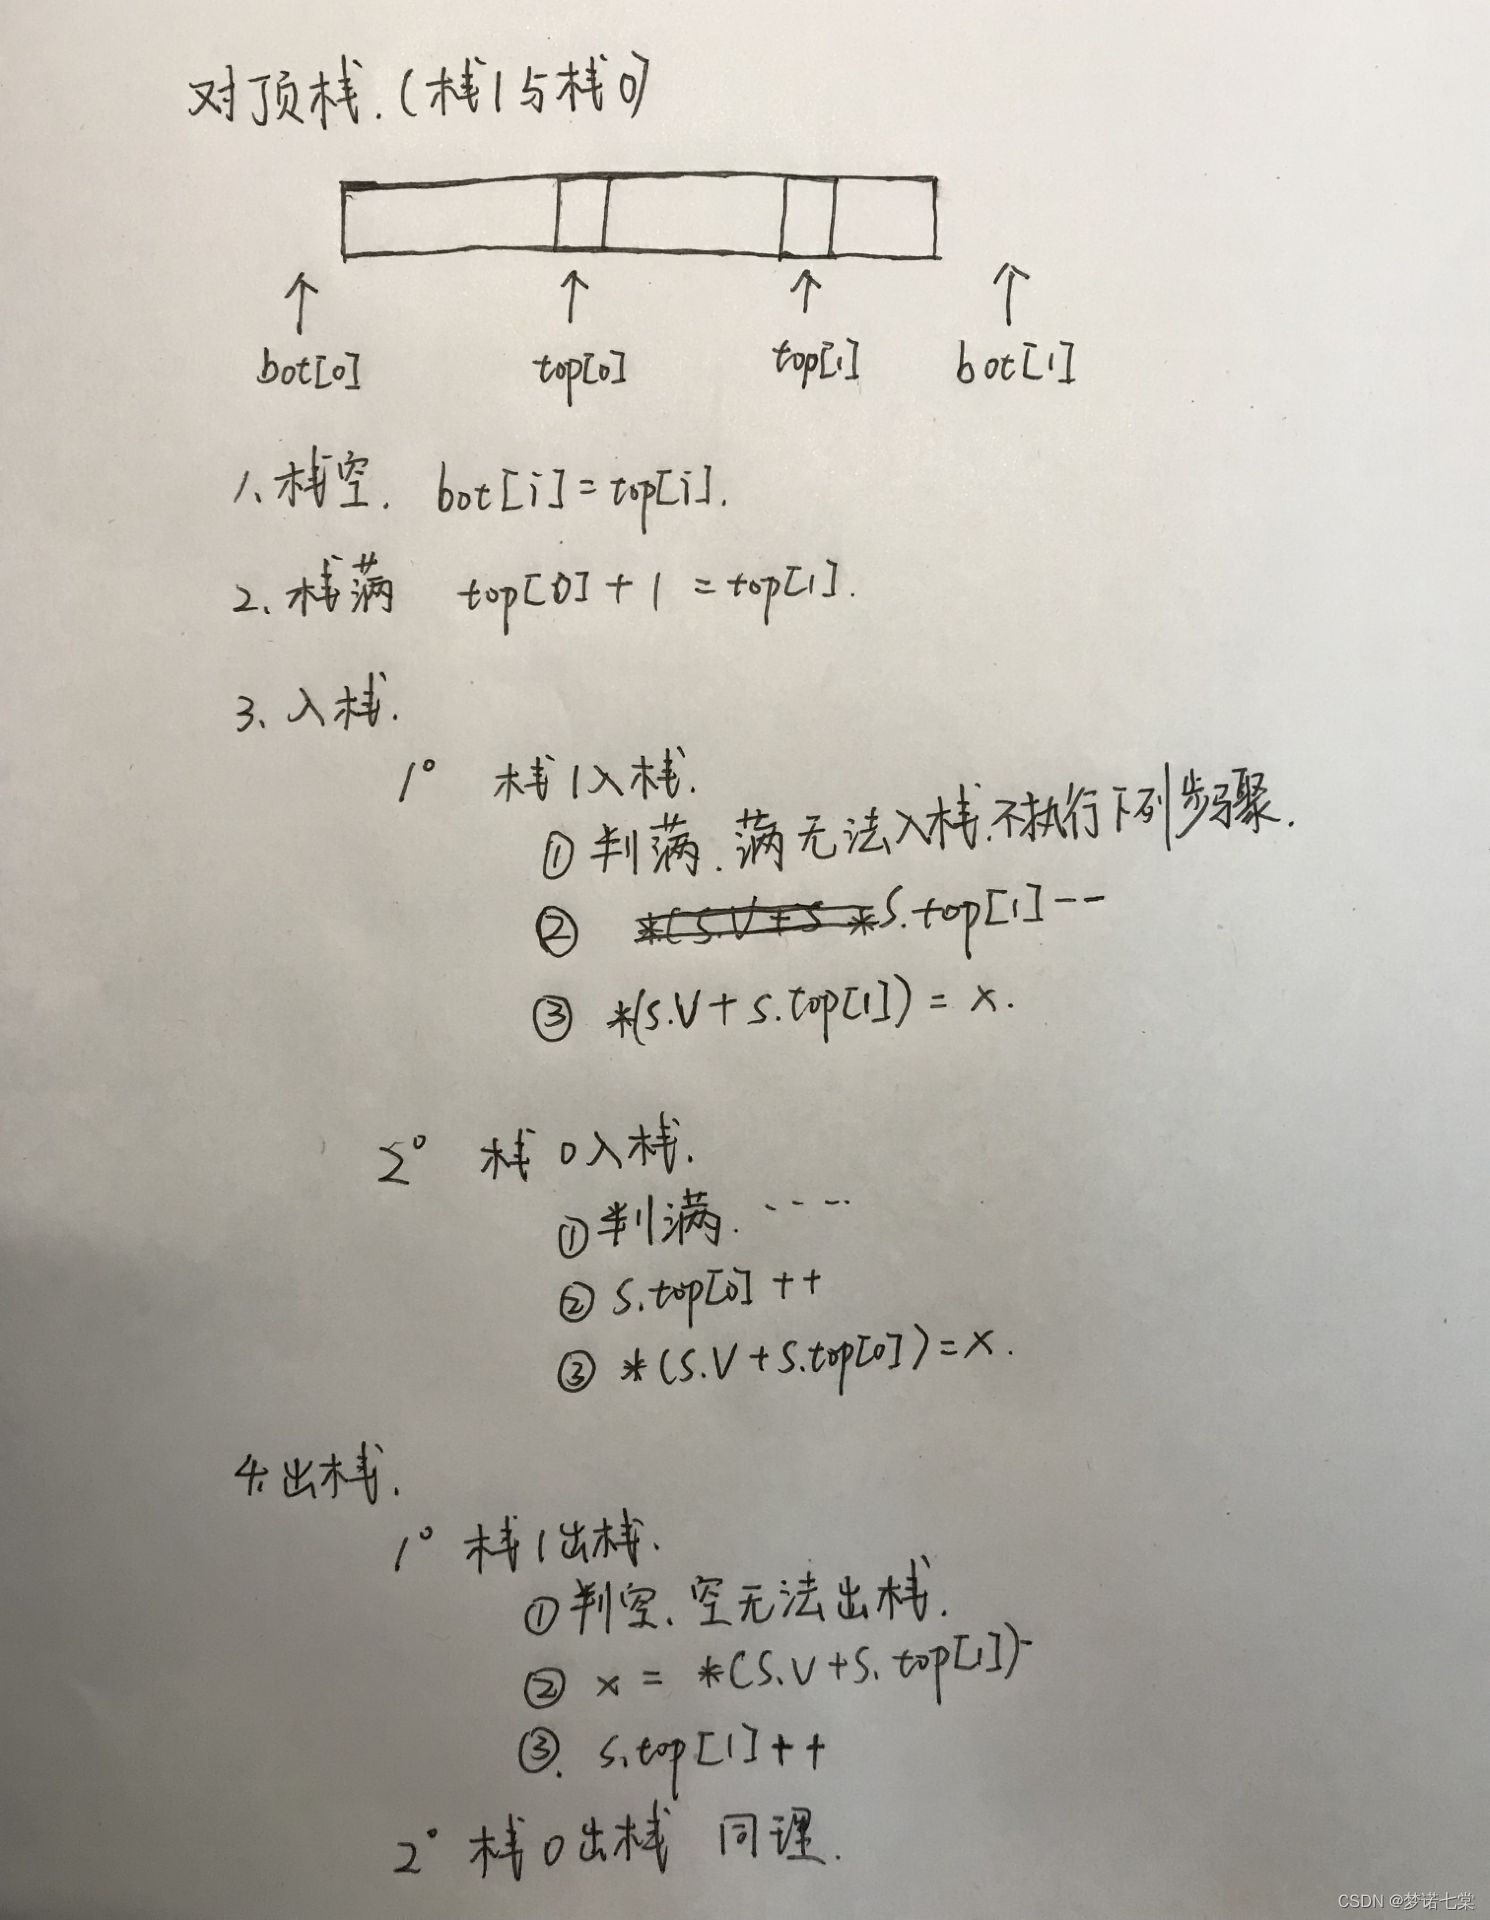 对顶栈.(栈1与栈0)
bot[0] top[0] top[1] bot[1]
1、栈空. bot[i]=top[i].
2、栈满 top[0]+1=top[1].
3、入栈.
1° 栈1入栈.
① 判满.满无法入栈.不执行下列步骤.
② S.top[1]--
③ *(S.V+S.top[1])=x.
2° 栈0入栈.
① 判满.----
② S.top[0]++
③ *(S.V+S.top[0])=x.
4.出栈.
1° 栈1出栈.
① 判空、空无法出栈.
② x=*(S.V+S.top[1])
③. S.top[1]++
2° 栈0出栈 同理.
CSDN @梦诺七棠